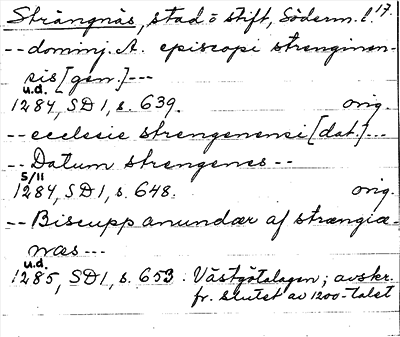 Strängnäs, stad o stift, Söderm. l. 17.
-- dominj. A. episcopi strenginen-
sis [gen.] ---
u.d.
1284, SD 1, s. 639. orig.
-- ecclesie strengenensi [dat.] --
-- Datum strengenes --
5/11
1284, SD 1, s. 648. orig.
-- Biscupp anundær af strængiæ-
næs ---
u.d.
1285, SD 1, s. 653. Västgötalagen; avskr.
fr. slutet av 1200-talet